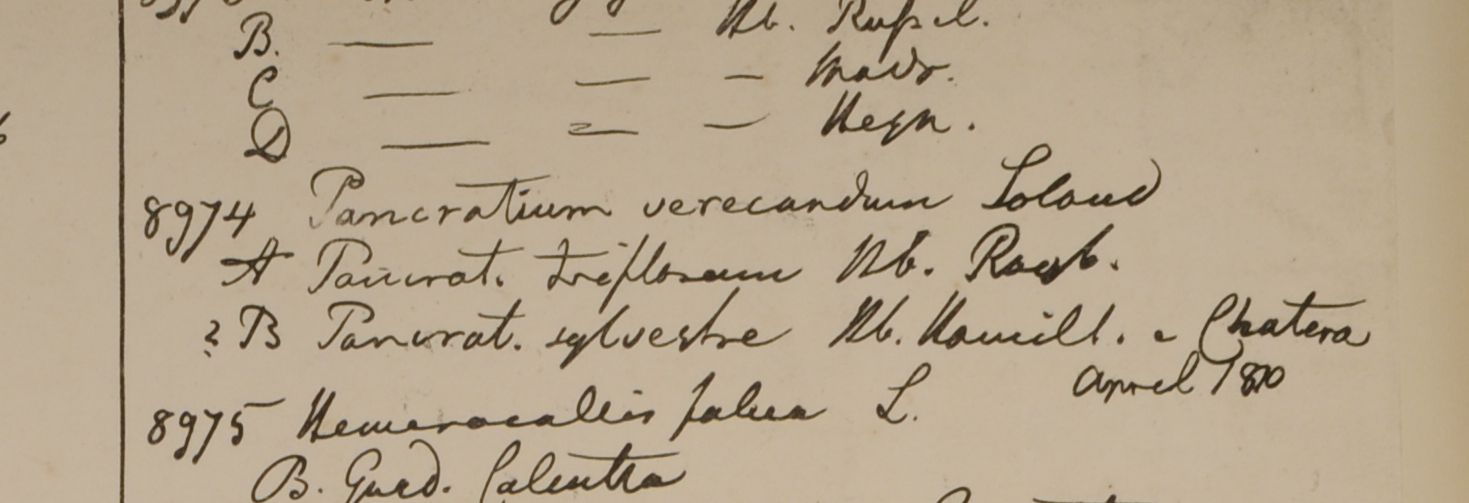 B. — — Hb. Russel.
C — — — Madr.
D — = — Heyn.
8974 Pancratium verecundum Soland
A Pancrat. triflorum Hb. Roxb.
? B Pancrat. sylvestre Hb. Hamilt. e Chatera
April 1810
8975 Hemerocallis fulva L.
B. Gard. Calcutta